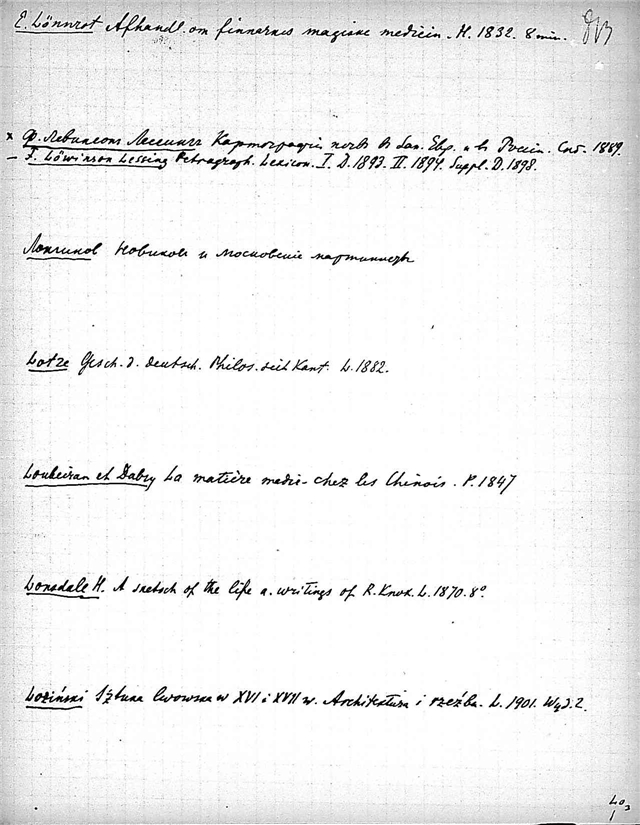 E. Lönnrot Afhandl. om finnarnes magiska medicin. H. 1832. 8 min.
x Ф. Левинсонъ Лессингъ Картографія почвъ в Зап. Евр. и въ Россіи. Спб. 1889.
— F. Löwinson Lessing Petrograph. Lexicon. I. D. 1893. II. 1894. Suppl. D. 1898.
Лонгинов Новиковъ и московскіе мартинисты
Lotze Gesch. d. deutsch. Philos. seit Kant. L. 1882.
Loubeiran et Dabry La matière medic- chez les Chinois. P. 1847
Lonsdale H. A sketsch of the life a. writings of R. Knox. L. 1870. 8°.
Łoziński Sztuka lwowska w XVI i XVII w. Architektura i rzeźba. L. 1901. Wyd. 2.
Lo3
1